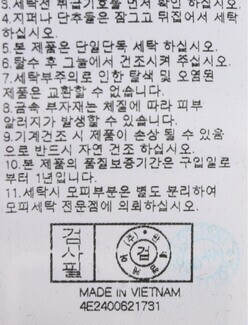 3.세탁전 취급기호를 먼저 확인 하십시오.
4.지퍼나 단추들은 잠그고 뒤집어서 세탁
하십시오.
5.본 제품은 단일단독 세탁 하십시오.
6.탈수 후 그늘에서 건조시켜 주십시오.
7.세탁부주의로 인한 탈색 및 오염된
제품은 교환할 수 없습니다.
8.금속 부자재는 체질에 따라 피부
알러지가 발생할 수 있습니다.
9.기계건조 시 제품이 손상 될 수 있음
으로 반드시 자연 건조 하십시오.
10.본 제품의 품질보증기간은 구입일로
부터 1년입니다.
11.세탁시 모피부분은 별도 분리하여
모피세탁 전문점에 의뢰하십시오.
검사필
검
MADE IN VIETNAM
4E2400621731